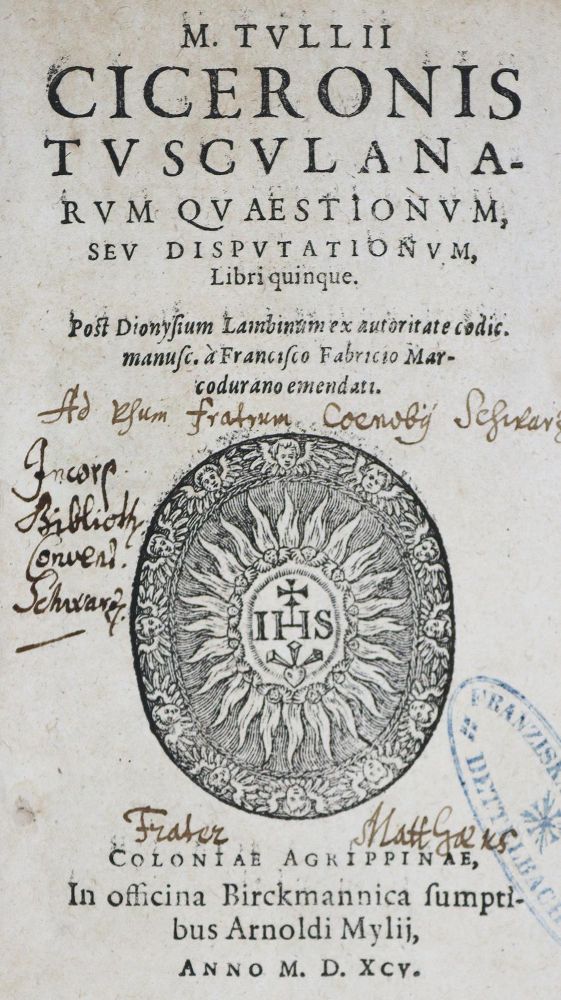 M. TVLLII
CICERONIS
TVSCVLANA-
RVM QVAESTIONVM,
SEV DISPVTATIONVM,
Libri quinque.
Post Dionysium Lambinum ex autoritate codic.
manusc. à Francisco Fabricio Mar-
codurano emendati.
Ad Vsum Fratrum Coenobij Schwarz
Incorp.
Biblioth.
Convent.
Schwarz.
IHS
Frater Matthaeus
COLONIAE AGRIPPINAE,
In officina Birckmannica sumpti-
bus Arnoldi Mylij,
ANNO M. D. XCV.
FRANZISK
DETTELBACH